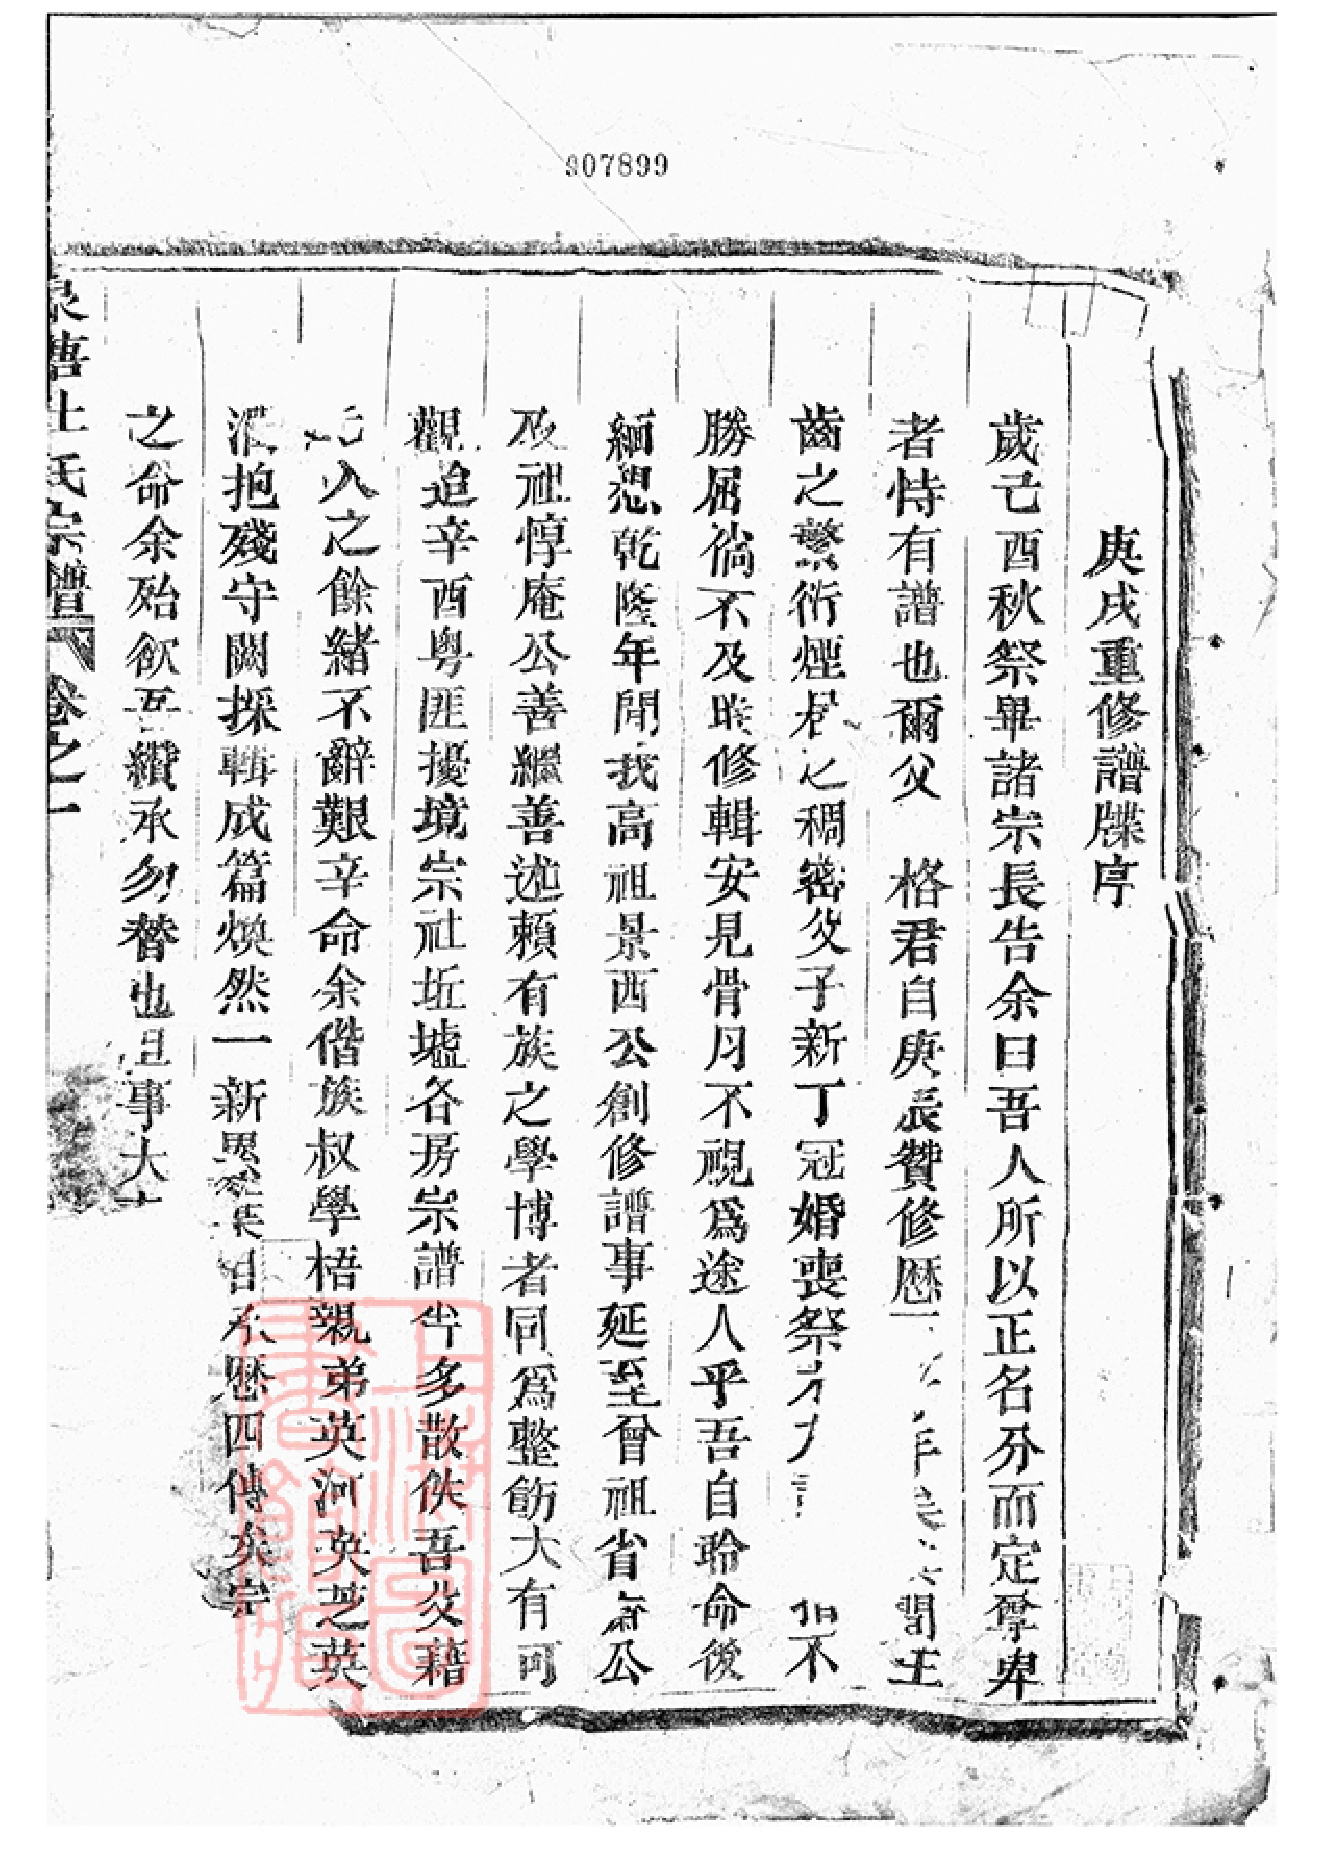 907899
庚戌重修譜牒序
歲己酉秋祭畢諸宗長告余曰吾人所以正名分而定尊卑
者恃有譜也爾父 格君自庚辰贊修歷 年 間生
齒之繁衍煙居之稠密父子新丁冠婚喪祭 不
勝屈倘不及時修輯安見骨肉不視爲途人乎吾自聆命後
緬想乾隆年間我高祖景西公創修譜事延至曾祖省齋公
及祖惇庵公善繼善述賴有族之學博者同爲整飭大有可
觀迨辛酉粵匪擾境宗社坵墟各房宗譜半多散佚吾父藉
人之餘緒不辭艱辛命余偕族叔學梧親弟英河英芝英
抱殘守闕採輯成篇煥然一新 自 歷四傳矣宗
之命余殆欲吾纘承勿替也且事大
氏宗譜 卷之一